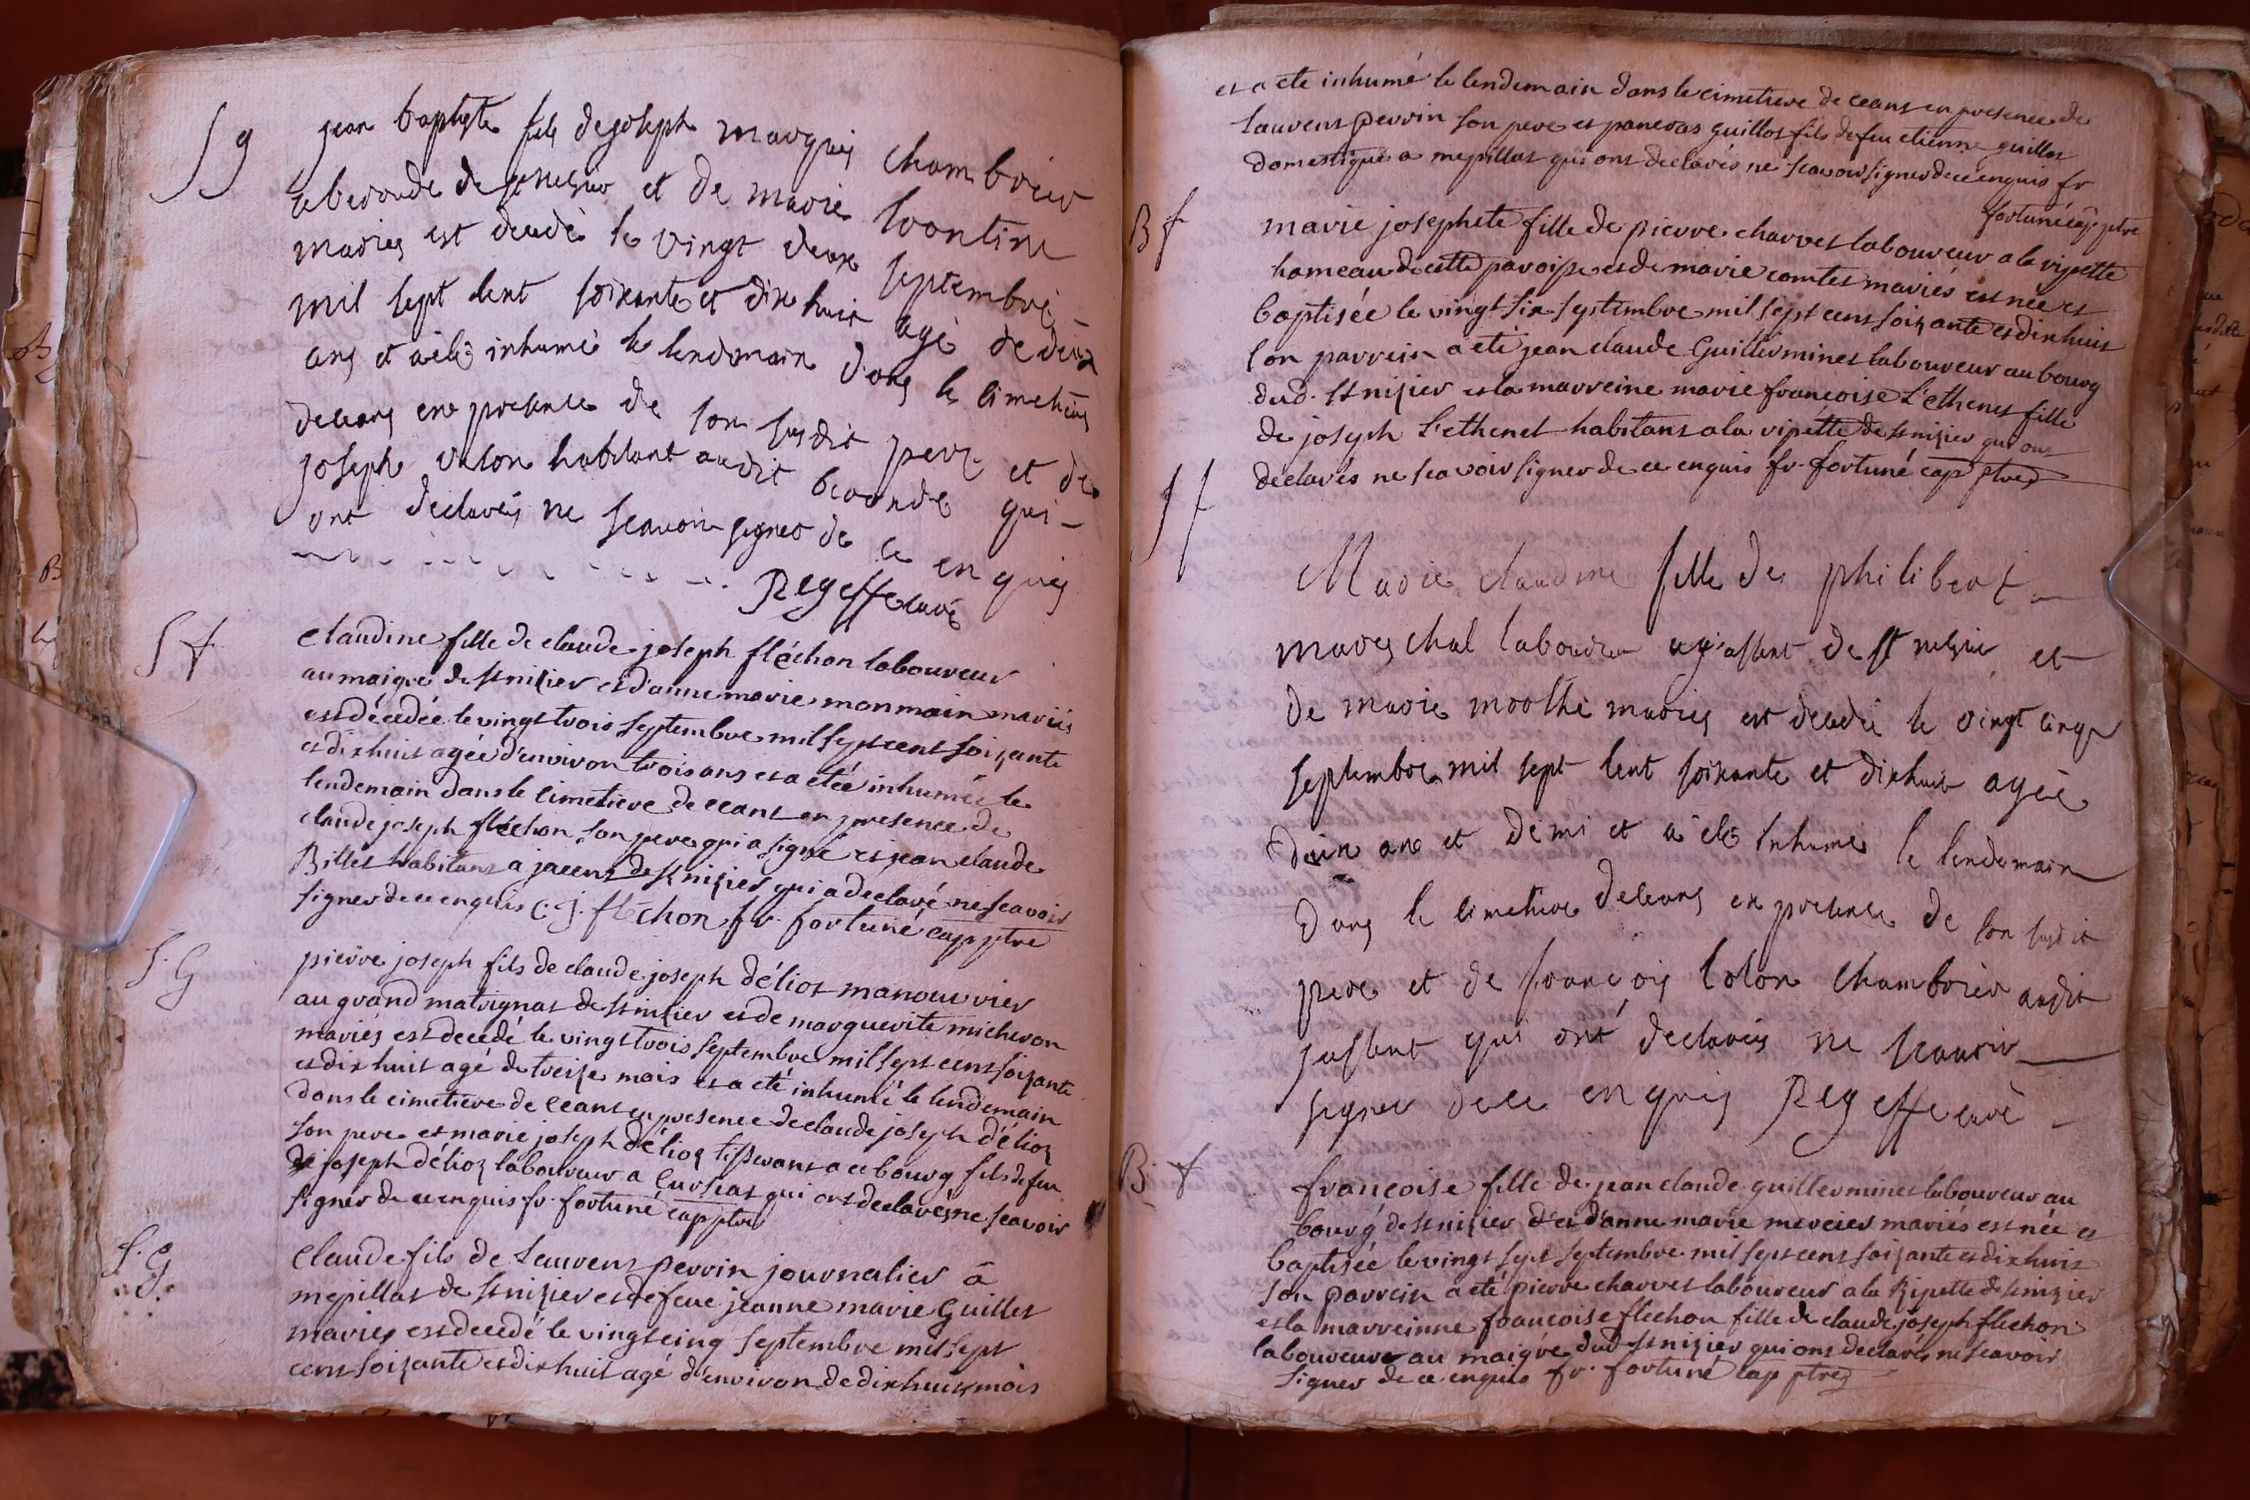 S g
jean baptiste fils de joseph marquis chambrier
a beronde de st nesier et de marie
maries est decedé le vingt deux septembre
mil sept cent soixante et dix huit agé de deux
ans et a été inhumé le lendemain dans le cimetiere
deceans en presence de son susdit pere et de
joseph habitant audit beronde qui
ont declarés ne scavoir signer de ce enquis
Regeffe curé
S f
Claudine fille de claude joseph fléchon laboureur
au maigre de st nizier et d'anne marie monmain mariés
est décedée le vingt trois septembre mil sept cent soizante
et dix huit agée d'environ trois ans et a etée inhumée le
lendemain dans le cimetiere de ceans en presence de
claude joseph fléchon son pere qui a signé et jean claude
Billet habitant a jacens de st nizier qui a declaré ne scavoir
signer de ce enquis C. J. fléchon fr. fortuné cap ptre
S. G
pierre joseph fils de claude joseph délior manouvrier
au grand matrignat de st nizier et de marguerite micheron
mariés est decedé le vingt trois septembre mil sept cent soizante
et dix huit agé de treize mois et a eté inhumé le lendemain
dans le cimetiere de ceans en presence de claude joseph délior
son pere et marie joseph délior tisserant a ce bourg fils de feu
joseph délior laboureur a Curtiat qui ont declarés ne scavoir
signer de ce enquis fr. fortuné cap ptre
S. G
Claude fils de Laurent perrin journalier à
mepillat de st nizier et de feue jeanne marie Guillet
mariés est decedé le vingt cinq septembre mil sept
cent soizante et dix huit agé d'environ de dix huit mois
et a ete inhumé le lendemain dans le cimetiere de ceans en presence de
laurent perrin son pere et pancras guillot fils de feu etienne guillot
domestique a mepillat qui ont declarés ne scavoir signer de ce enquis fr
fortuné cap. ptre
B f
marie josephete fille de pierre charvet laboureur a la ripette
hameau de cette paroisse et de marie comtet mariés est née et
baptisée le vingt six septembre mil sept cent soizante et dix huit
son parrein a eté jean claude Guillerminet laboureur au bourg
dud. st nizier et la marreine marie francoise L'ethenet fille
de joseph L'ethenet habitant a la ripette de st nizier qui ont
declarés ne scavoir signer de ce enquis fr. fortuné cap ptre
S f
Marie claudine fille de philibert
mareschal laboureur de st nesier et
de marie moothe maries est decedé le vingt cinq
septembre mil sept cent soixante et dixhuit agée
d'un an et demi et a été inhumé le lendemain
dans le cimetiere deceans en presence de son susdit
pere et de francois Colon chambrier audit
qui ont declarés ne scavoir
signer dece enquis Regeffe curé
B. f
francoise fille de jean claude guillerminet laboureur au
bourg de st nizier et d'anne marie mercier mariés est née et
baptisée le vingt sept septembre mil sept cent soizante et dix huit
son parrein a eté pierre charvet laboureur a la Ripette de st nizier
et la marreinne francoise flechon fille de claude joseph flechon
laboureur au maigre dud st nizier qui ont declarés ne scavoir
signer de ce enquis fr. fortuné cap ptre